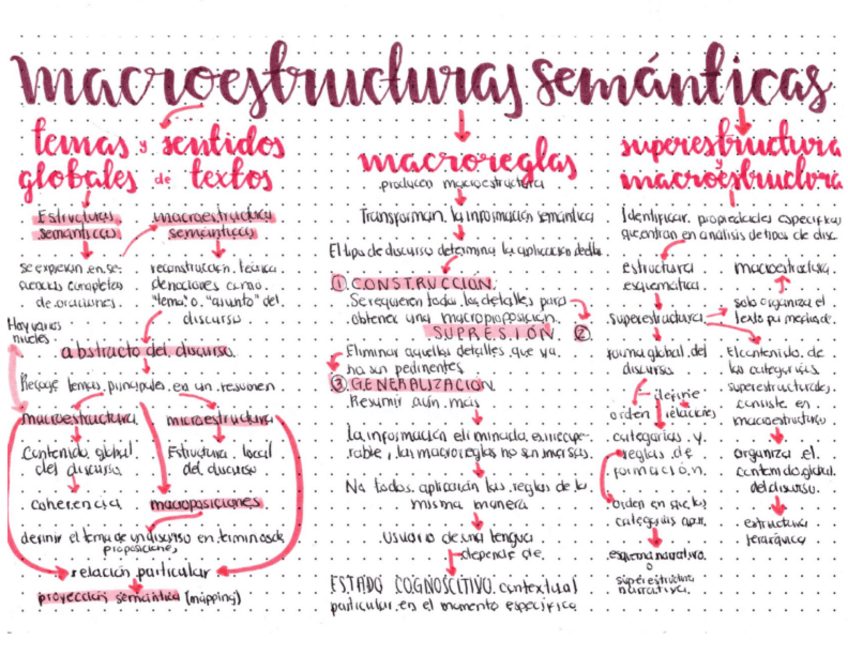 macroestructuras semánticas
temas y sentidos
globales de textos
Estructuras
semánticas
macroestructura
semánticas
se expresan en se-
cuencias completas
de oraciones.
reconstrucción teórica
de nociones como
"tema" o "asunto" del
discurso
Hay varios
niveles
abstracto del discurso
Recoge temas principales en un resumen
macroestructura
microestructura
Contenido global
del discurso
Estructura local
del discurso
coherencia
macroposiciones
definir el tema de un discurso en terminos de
proposiciones
relación particular
proyección semántica (mapping)
macroreglas
producen macroestructura
Transforman la información semántica
El tipo de discurso determina la aplicación de
① CONSTRUCCIÓN
Se requieren todos los detalles para
obtener una macroproposición.
SUPRESIÓN ②
Eliminar aquellos detalles que ya
no son pertinentes
③ GENERALIZACIÓN
Resumir aún más
La información eliminada es irrecupe-
rable, las macroreglas no son inversas.
No todos aplicarán las reglas de la
misma manera
Usuario de una lengua
depende de
ESTADO COGNOSCITIVO contextual
particular en el momento específico
superestructura
macroestructura
Identificar propiedades específicas
que entran en análisis de tipos de disc.
estructura
esquemática
macroestructura
superestructura
solo organiza el
texto por medio de
forma global del
discurso
El contenido de
las categorías
superestructurales
consiste en
macroestructura
define
orden
relaciones
categorías y
reglas de
formación
organiza el
contenido global
del discurso.
orden en que las
categorías
estructura
jerárquica
esquema narrativo
o
superestructura
narrativa.